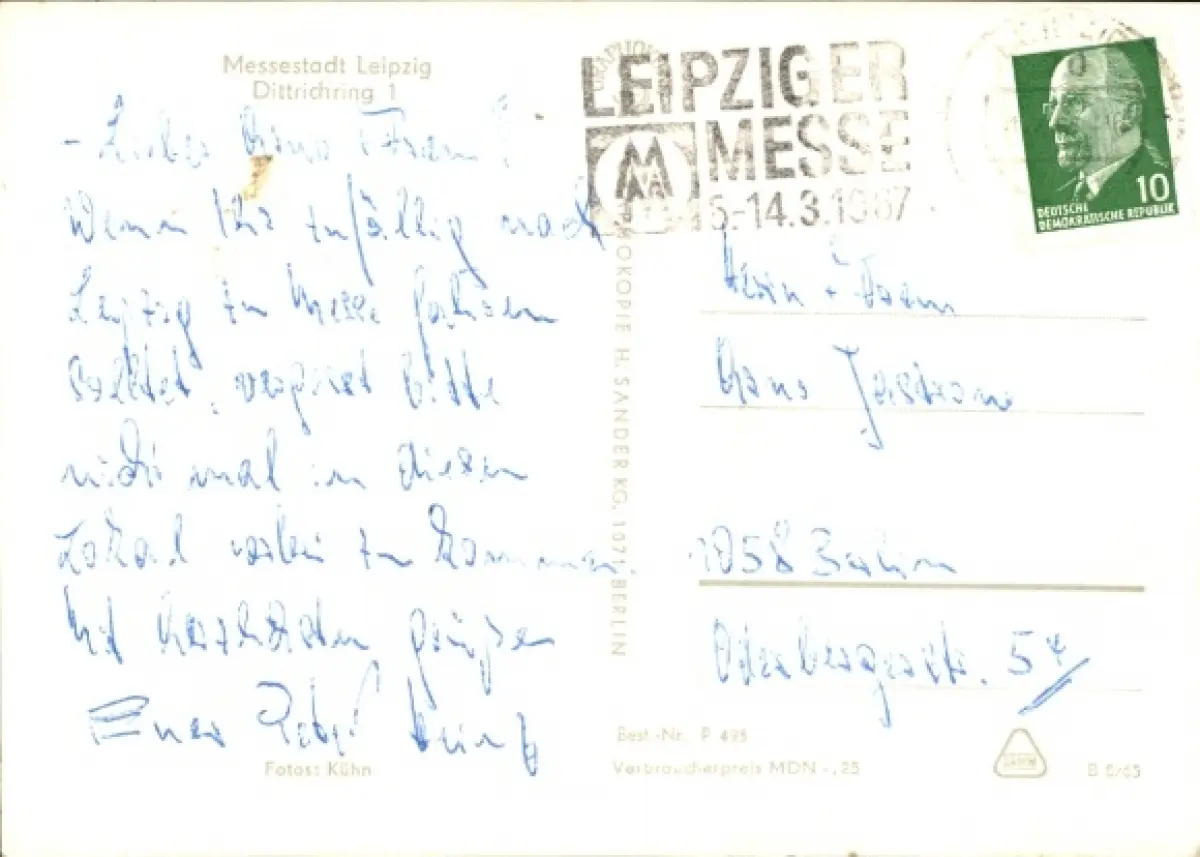 Messestadt Leipzig
Dittrichring 1
- Lieber Hans + Frau!
Wenn Ihr zufällig nach
Leipzig zu Messe fahren
solltet, vergesst bitte
nicht mal in diesen
Lokal vorbei zu kommen.
Mit herzlichsten Grüßen
Euer Peter
Fotos: Kühn
LEIPZIGER
MESSE
5.-14.3.1967
DEUTSCHE
DEMOKRATISCHE REPUBLIK
10
OKOPIE H. SANDER KG, 1071 BERLIN
Herrn + Frau
Hans
1058 Berlin
Oderbergerstr. 54
Best.-Nr. P 495
Verbraucherpreis MDN -,25
B 6/65